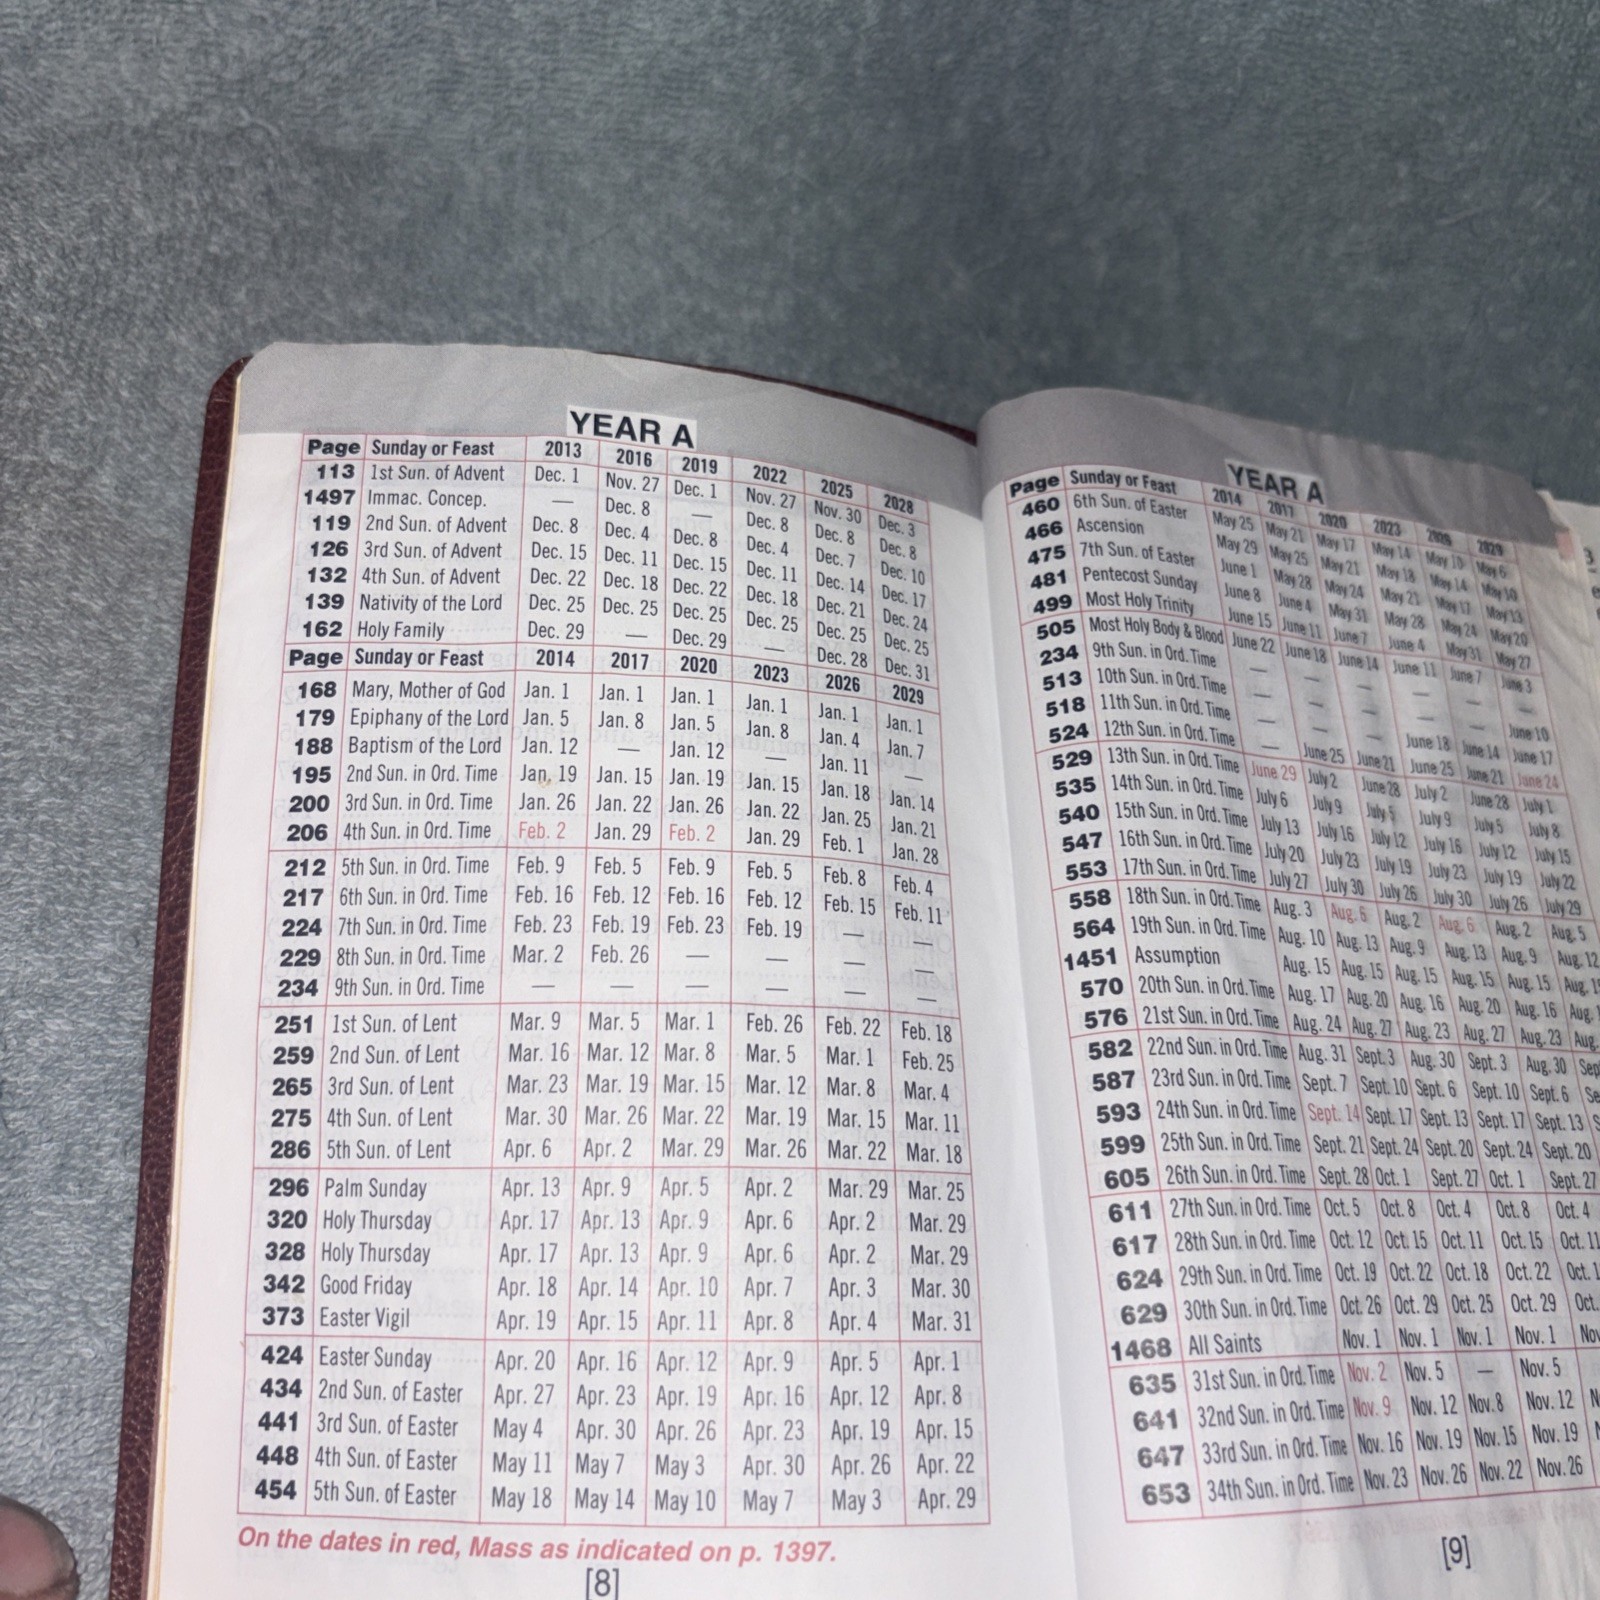 YEAR A
Page Sunday or Feast 2013 2016 2019 2022 2025 2028
113 1st Sun. of Advent Dec. 1 Nov. 27 Dec. 1 Nov. 27 Nov. 30 Dec. 3
1497 Immac. Concep. — Dec. 8 — Dec. 8 Dec. 8 Dec. 8
119 2nd Sun. of Advent Dec. 8 Dec. 4 Dec. 8 Dec. 4 Dec. 7 Dec. 10
126 3rd Sun. of Advent Dec. 15 Dec. 11 Dec. 15 Dec. 11 Dec. 14 Dec. 17
132 4th Sun. of Advent Dec. 22 Dec. 18 Dec. 22 Dec. 18 Dec. 21 Dec. 24
139 Nativity of the Lord Dec. 25 Dec. 25 Dec. 25 Dec. 25 Dec. 25 Dec. 25
162 Holy Family Dec. 29 — Dec. 29 — Dec. 28 Dec. 31
Page Sunday or Feast 2014 2017 2020 2023 2026 2029
168 Mary, Mother of God Jan. 1 Jan. 1 Jan. 1 Jan. 1 Jan. 1 Jan. 1
179 Epiphany of the Lord Jan. 5 Jan. 8 Jan. 5 Jan. 8 Jan. 4 Jan. 7
188 Baptism of the Lord Jan. 12 — Jan. 12 — Jan. 11 —
195 2nd Sun. in Ord. Time Jan. 19 Jan. 15 Jan. 19 Jan. 15 Jan. 18 Jan. 14
200 3rd Sun. in Ord. Time Jan. 26 Jan. 22 Jan. 26 Jan. 22 Jan. 25 Jan. 21
206 4th Sun. in Ord. Time Feb. 2 Jan. 29 Feb. 2 Jan. 29 Feb. 1 Jan. 28
212 5th Sun. in Ord. Time Feb. 9 Feb. 5 Feb. 9 Feb. 5 Feb. 8 Feb. 4
217 6th Sun. in Ord. Time Feb. 16 Feb. 12 Feb. 16 Feb. 12 Feb. 15 Feb. 11
224 7th Sun. in Ord. Time Feb. 23 Feb. 19 Feb. 23 Feb. 19 — —
229 8th Sun. in Ord. Time Mar. 2 Feb. 26 — — — —
234 9th Sun. in Ord. Time — — — — — —
251 1st Sun. of Lent Mar. 9 Mar. 5 Mar. 1 Feb. 26 Feb. 22 Feb. 18
259 2nd Sun. of Lent Mar. 16 Mar. 12 Mar. 8 Mar. 5 Mar. 1 Feb. 25
265 3rd Sun. of Lent Mar. 23 Mar. 19 Mar. 15 Mar. 12 Mar. 8 Mar. 4
275 4th Sun. of Lent Mar. 30 Mar. 26 Mar. 22 Mar. 19 Mar. 15 Mar. 11
286 5th Sun. of Lent Apr. 6 Apr. 2 Mar. 29 Mar. 26 Mar. 22 Mar. 18
296 Palm Sunday Apr. 13 Apr. 9 Apr. 5 Apr. 2 Mar. 29 Mar. 25
320 Holy Thursday Apr. 17 Apr. 13 Apr. 9 Apr. 6 Apr. 2 Mar. 29
328 Holy Thursday Apr. 17 Apr. 13 Apr. 9 Apr. 6 Apr. 2 Mar. 29
342 Good Friday Apr. 18 Apr. 14 Apr. 10 Apr. 7 Apr. 3 Mar. 30
373 Easter Vigil Apr. 19 Apr. 15 Apr. 11 Apr. 8 Apr. 4 Mar. 31
424 Easter Sunday Apr. 20 Apr. 16 Apr. 12 Apr. 9 Apr. 5 Apr. 1
434 2nd Sun. of Easter Apr. 27 Apr. 23 Apr. 19 Apr. 16 Apr. 12 Apr. 8
441 3rd Sun. of Easter May 4 Apr. 30 Apr. 26 Apr. 23 Apr. 19 Apr. 15
448 4th Sun. of Easter May 11 May 7 May 3 Apr. 30 Apr. 26 Apr. 22
454 5th Sun. of Easter May 18 May 14 May 10 May 7 May 3 Apr. 29
On the dates in red, Mass as indicated on p. 1397.
[8]
YEAR A
Page Sunday or Feast 2014 2017 2020 2023 2026 2029
460 6th Sun. of Easter May 25 May 21 May 17 May 14 May 10 May 6
466 Ascension May 29 May 25 May 21 May 18 May 14 May 10
475 7th Sun. of Easter June 1 May 28 May 24 May 21 May 17 May 13
481 Pentecost Sunday June 8 June 4 May 31 May 28 May 24 May 20
499 Most Holy Trinity June 15 June 11 June 7 June 4 May 31 May 27
505 Most Holy Body & Blood June 22 June 18 June 14 June 11 June 7 June 3
234 9th Sun. in Ord. Time — — — — — —
513 10th Sun. in Ord. Time — — — — — June 10
518 11th Sun. in Ord. Time — — — June 18 June 14 June 17
524 12th Sun. in Ord. Time — June 25 June 21 June 25 June 21 June 24
529 13th Sun. in Ord. Time June 29 July 2 June 28 July 2 June 28 July 1
535 14th Sun. in Ord. Time July 6 July 9 July 5 July 9 July 5 July 8
540 15th Sun. in Ord. Time July 13 July 16 July 12 July 16 July 12 July 15
547 16th Sun. in Ord. Time July 20 July 23 July 19 July 23 July 19 July 22
553 17th Sun. in Ord. Time July 27 July 30 July 26 July 30 July 26 July 29
558 18th Sun. in Ord. Time Aug. 3 Aug. 6 Aug. 2 Aug. 6 Aug. 2 Aug. 5
564 19th Sun. in Ord. Time Aug. 10 Aug. 13 Aug. 9 Aug. 13 Aug. 9 Aug. 12
1451 Assumption Aug. 15 Aug. 15 Aug. 15 Aug. 15 Aug. 15 Aug.
570 20th Sun. in Ord. Time Aug. 17 Aug. 20 Aug. 16 Aug. 20 Aug. 16 Aug.
576 21st Sun. in Ord. Time Aug. 24 Aug. 27 Aug. 23 Aug. 27 Aug. 23 Aug.
582 22nd Sun. in Ord. Time Aug. 31 Sept. 3 Aug. 30 Sept. 3 Aug. 30
587 23rd Sun. in Ord. Time Sept. 7 Sept. 10 Sept. 6 Sept. 10 Sept. 6
593 24th Sun. in Ord. Time Sept. 14 Sept. 17 Sept. 13 Sept. 17 Sept. 13
599 25th Sun. in Ord. Time Sept. 21 Sept. 24 Sept. 20 Sept. 24 Sept. 20
605 26th Sun. in Ord. Time Sept. 28 Oct. 1 Sept. 27 Oct. 1 Sept. 27
611 27th Sun. in Ord. Time Oct. 5 Oct. 8 Oct. 4 Oct. 8 Oct. 4
617 28th Sun. in Ord. Time Oct. 12 Oct. 15 Oct. 11 Oct. 15 Oct. 11
624 29th Sun. in Ord. Time Oct. 19 Oct. 22 Oct. 18 Oct. 22 Oct.
629 30th Sun. in Ord. Time Oct. 26 Oct. 29 Oct. 25 Oct. 29 Oct.
1468 All Saints Nov. 1 Nov. 1 Nov. 1 Nov. 1
635 31st Sun. in Ord. Time Nov. 2 Nov. 5 — Nov. 5
641 32nd Sun. in Ord. Time Nov. 9 Nov. 12 Nov. 8 Nov. 12
647 33rd Sun. in Ord. Time Nov. 16 Nov. 19 Nov. 15 Nov. 19
653 34th Sun. in Ord. Time Nov. 23 Nov. 26 Nov. 22 Nov. 26
[9]